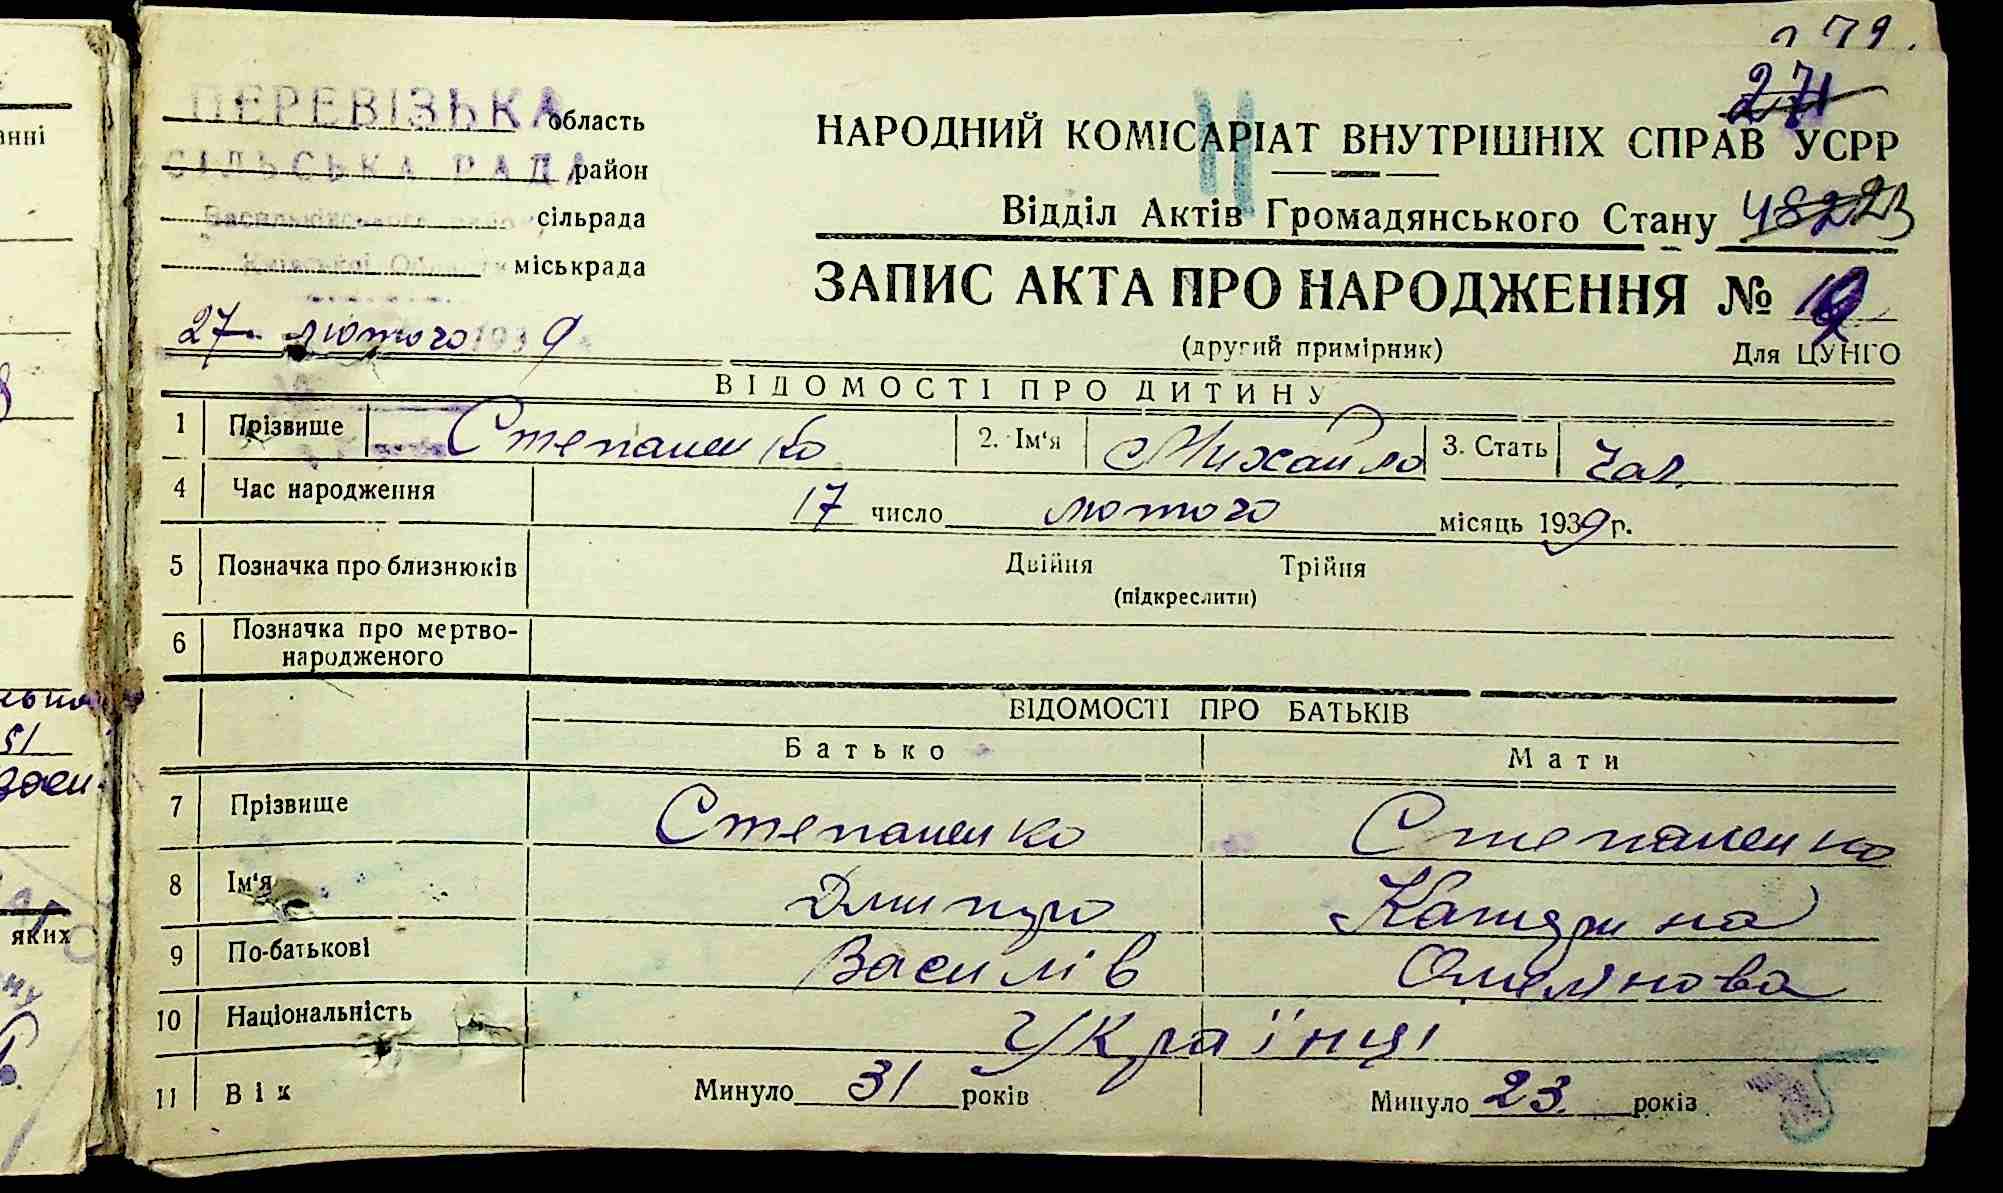 279.
271
ПЕРЕВІЗЬКА область
СІЛЬСЬКА РАДА район
Васильківського району сільрада
Київської Області міськрада
27 лютого 1939
НАРОДНИЙ КОМІСАРІАТ ВНУТРІШНІХ СПРАВ УСРР
Відділ Актів Громадянського Стану
ЗАПИС АКТА ПРО НАРОДЖЕННЯ №
(другий примірник) Для ЦУНГО
ВІДОМОСТІ ПРО ДИТИНУ
1 Прізвище Степаненко 2. Ім‘я Михайло 3. Стать чол.
4 Час народження 17 число лютого місяць 1939 р.
5 Позначка про близнюків Двійня Трійня
(підкреслити)
6 Позначка про мертво-
народженого
ВІДОМОСТІ ПРО БАТЬКІВ
Батько Мати
7 Прізвище Степаненко Степаненко
8 Ім‘я Дмитро Катерина
9 По-батькові Василів Омелянова
10 Національність Українці
11 Вік Минуло 31 років Минуло 23 років
анні
51
яких